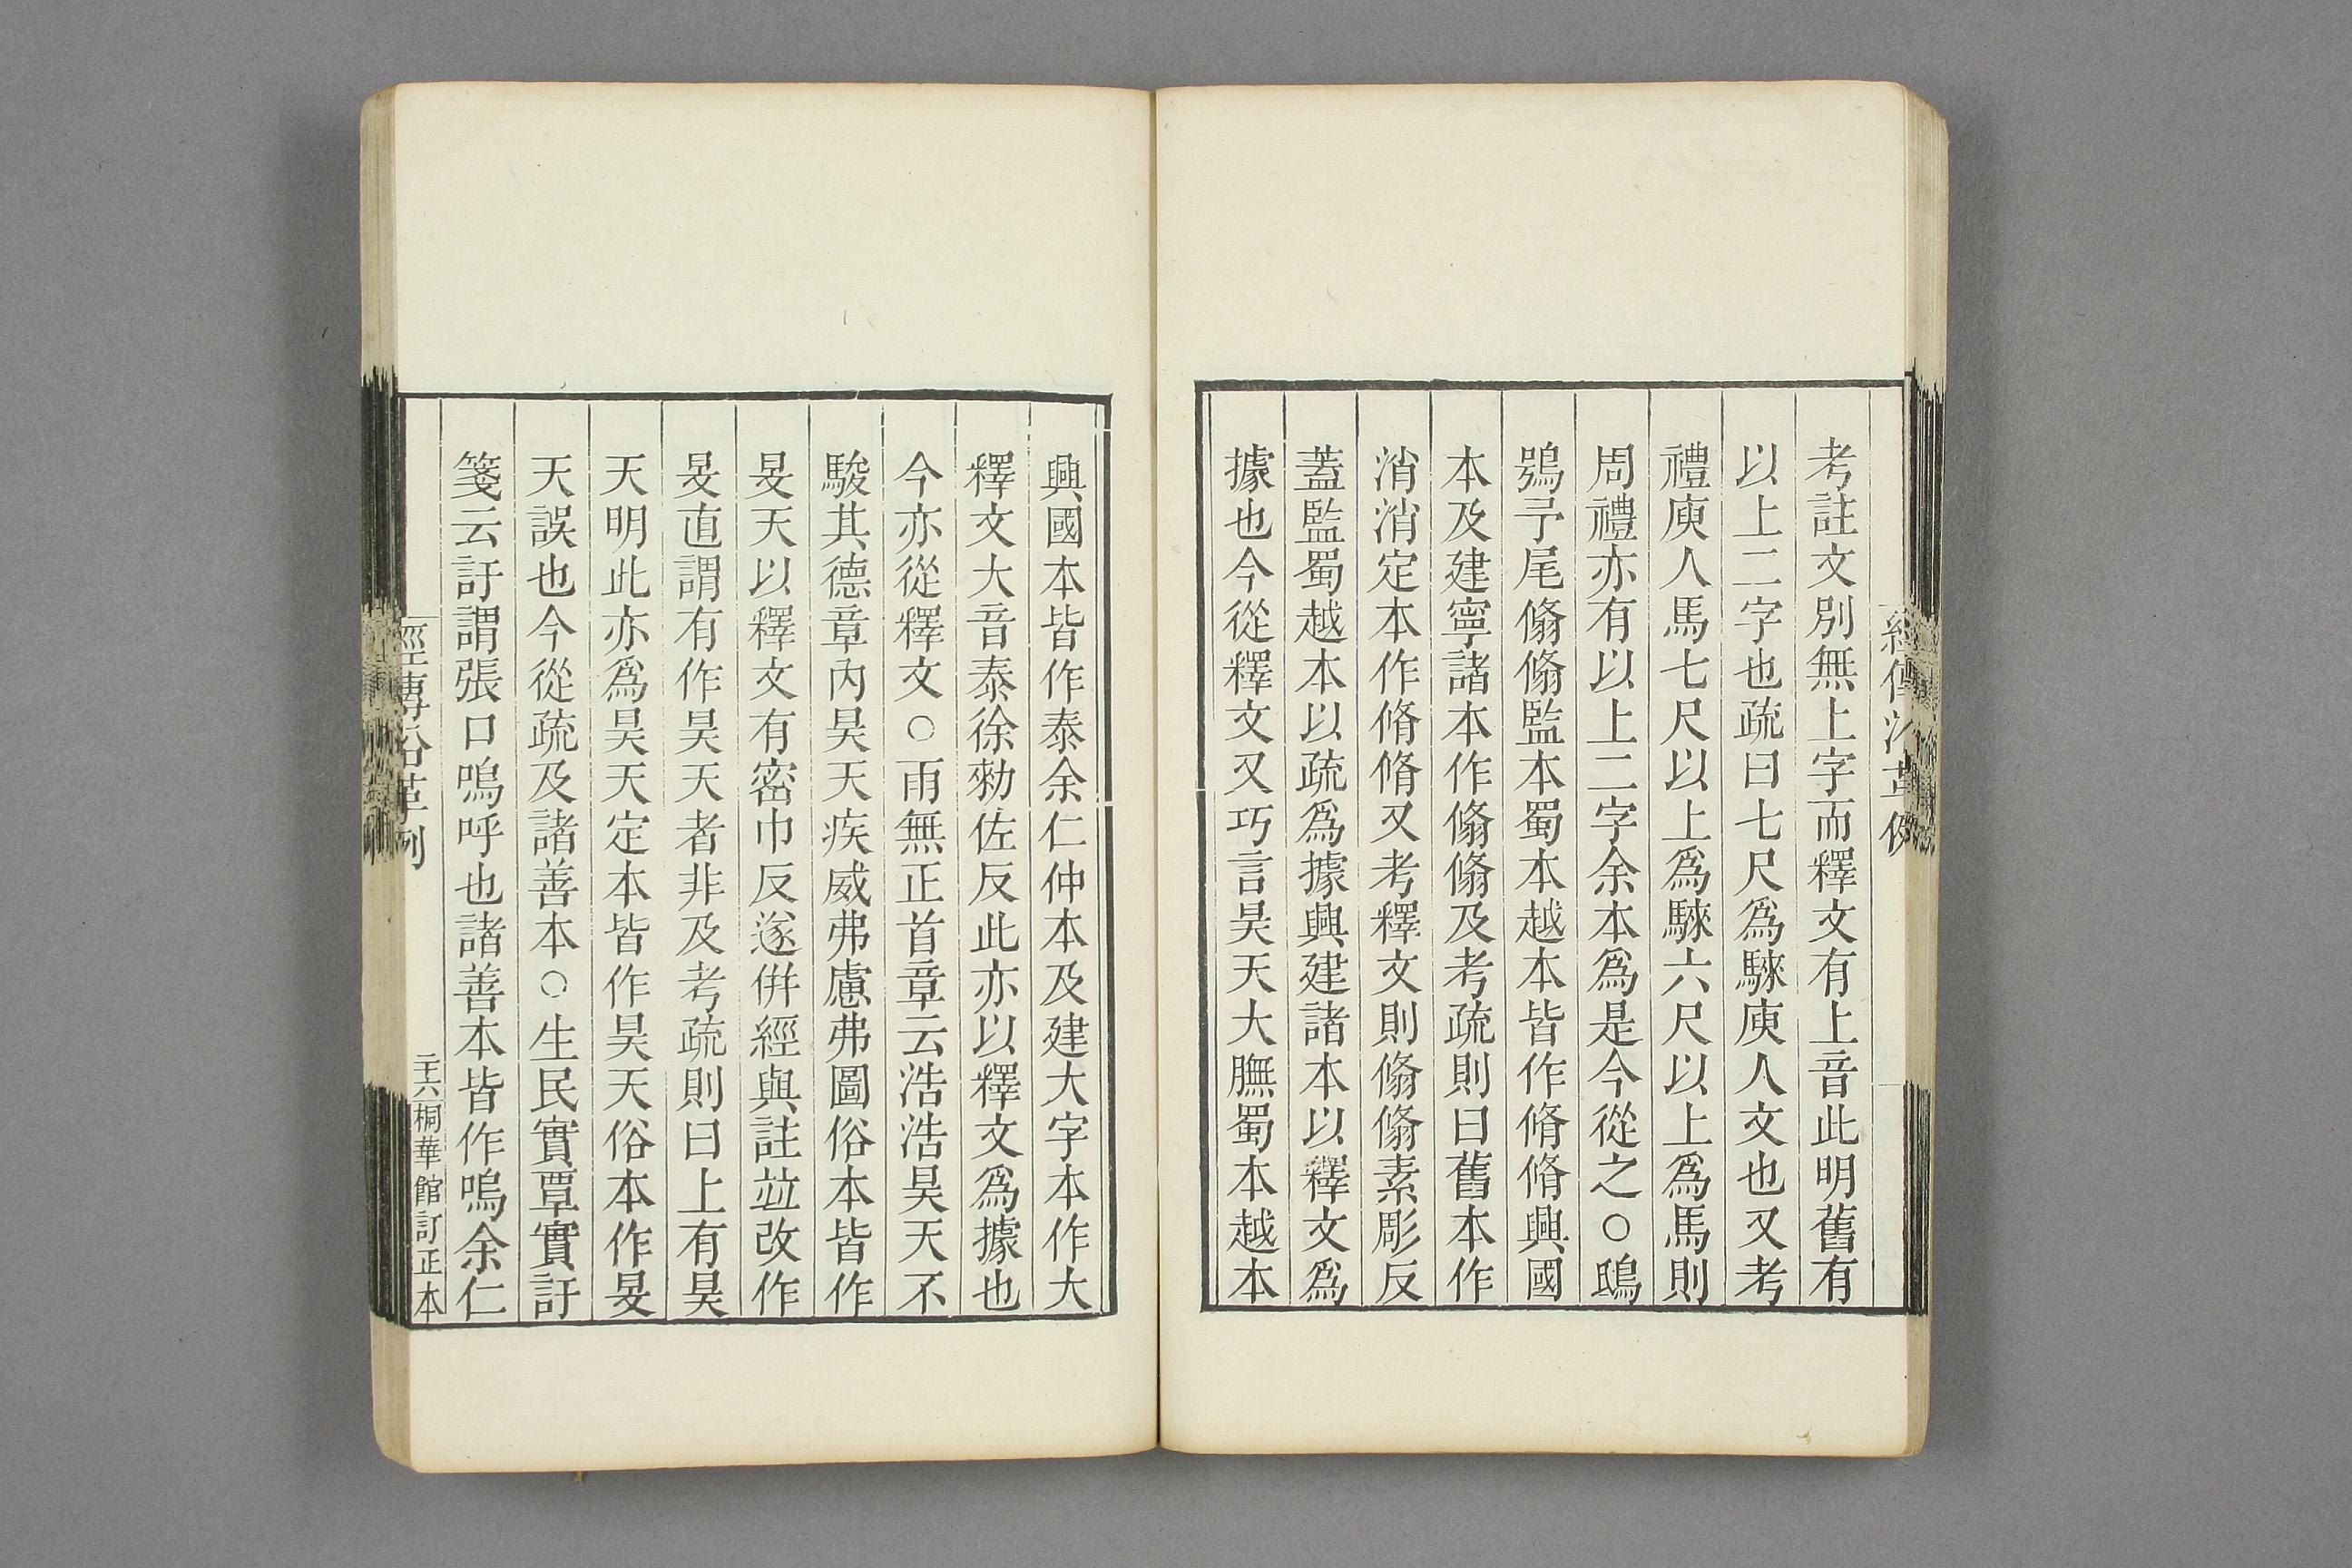 經傳沿革例
考註文別無上字而釋文有上音此明舊有
以上二字也疏曰七尺爲騋庾人文也又考
禮庾人馬七尺以上爲騋六尺以上爲馬則
周禮亦有以上二字余本爲是今從之○鴟
鴞予尾翛翛監本蜀本越本皆作脩脩興國
本及建寧諸本作翛翛及考疏則曰舊本作
消消定本作脩脩又考釋文則翛翛素彫反
蓋監蜀越本以疏爲據興建諸本以釋文爲
據也今從釋文又巧言昊天大膴蜀本越本
興國本皆作泰余仁仲本及建大字本作大
釋文大音泰徐勑佐反此亦以釋文爲據也
今亦從釋文○雨無正首章云浩浩昊天不
駿其德章內昊天疾威弗慮弗圖俗本皆作
旻天以釋文有密巾反遂倂經與註竝改作
旻直謂有作昊天者非及考疏則曰上有昊
天明此亦爲昊天定本皆作昊天俗本作旻
天誤也今從疏及諸善本○生民實覃實訏
箋云訏謂張口嗚呼也諸善本皆作嗚余仁
經傳沿革例
二十六
桐華館訂正本